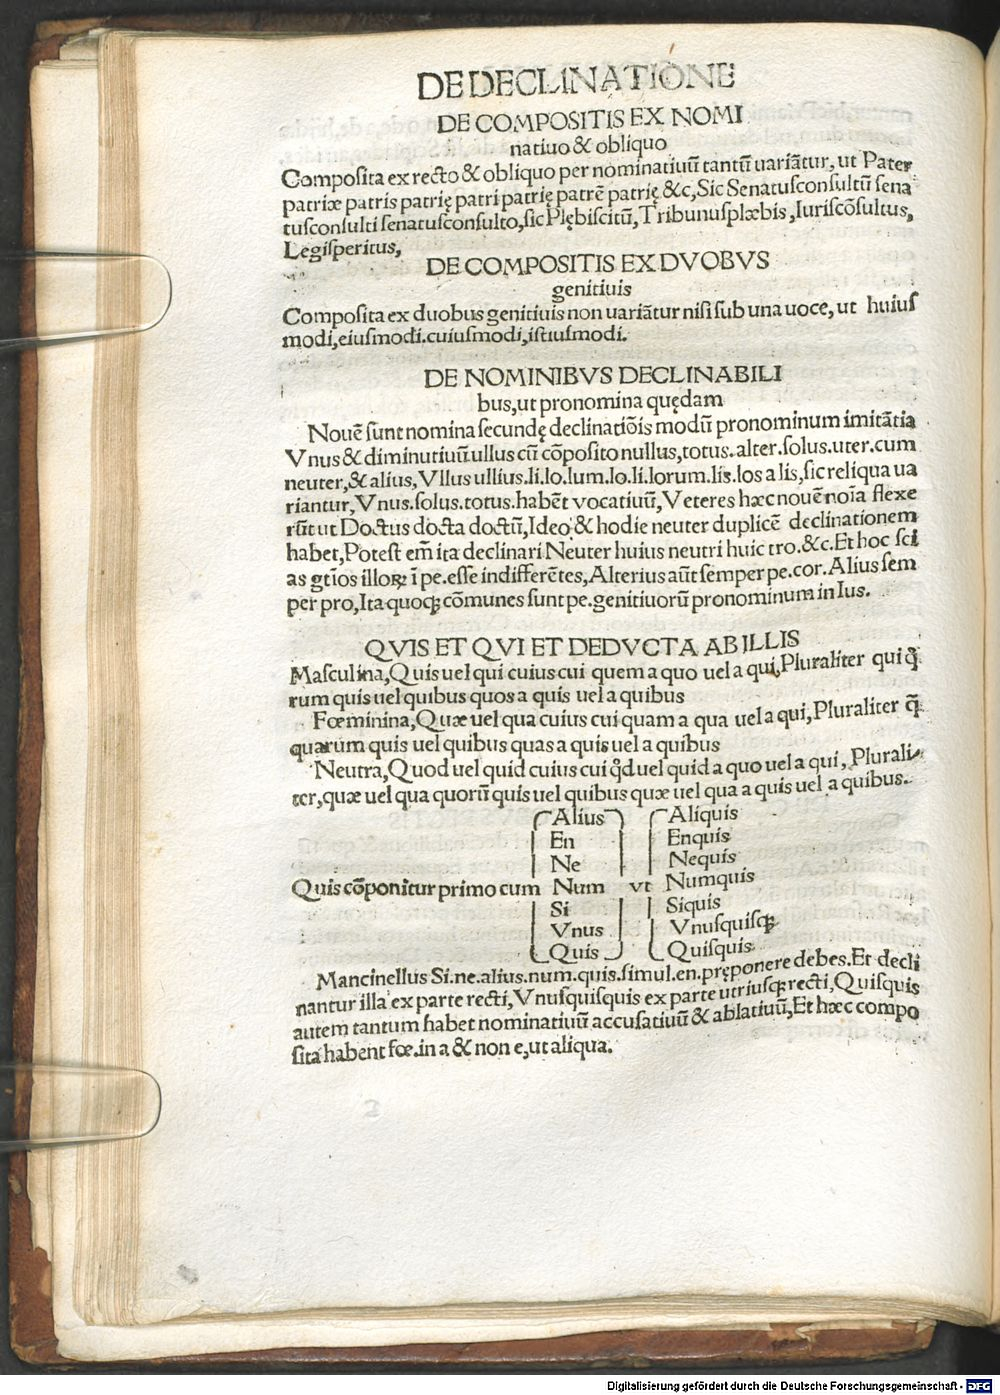 DE DECLINATIONE
DE COMPOSITIS EX NOMI
natiuo & obliquo
Composita ex recto & obliquo per nominatiuū tantū uariātur, ut Pater
patriæ patris patrię patri patrię patrē patrię &c, Sic Senatuſconſultū ſena
tuſconſulti ſenatuſconſulto, ſic Plębiſcitū, Tribunuſplæbis, Iuriſcōſultus,
Legiſperitus,
DE COMPOSITIS EX DVOBVS
genitiuis
Compoſita ex duobus genitiuis non uariātur niſi ſub una uoce, ut huiuſ
modi, eiuſmodi. cuiuſmodi, iſtiuſmodi.
DE NOMINIBVS DECLINABILI
bus, ut pronomina quędam
Nouē ſunt nomina ſecundę declinatiōis modū pronominum imitātia
Vnus & diminutiuū ullus cū cōpoſito nullus, totus. alter. ſolus. uter. cum
neuter, & alius, Vllus ullius. li. lo. lum. lo. li. lorum. lis. los a lis, ſic reliqua ua
riantur, Vnus. ſolus. totus. habēt vocatiuū, Veteres hæc nouē noīa flexe
rūt ut Doctus docta doctū, Ideo & hodie neuter duplicē declinationem
habet, Poteſt em̄ ita declinari Neuter huius neutri huic tro. &c. Et hoc ſci
as gt̄ios illoꝝ ī pe. eſſe indifferētes, Alterius aūt ſemper pe. cor. Alius ſem
per pro, Ita quoqꝫ cōmunes ſunt pe. genitiuorū pronominum in Ius.
QVIS ET QVI ET DEDVCTA AB ILLIS
Maſculina, Quis uel qui cuius cui quem a quo uel a qui, Pluraliter qui q̄
rum quis uel quibus quos a quis uel a quibus
Fœminina, Quæ uel qua cuius cui quam a qua uel a qui, Pluraliter q̄
quarum quis uel quibus quas a quis uel a quibus
Neutra, Quod uel quid cuius cui qd̄ uel quid a quo uel a qui, Plurali
ter, quæ uel qua quorū quis uel quibus quæ uel qua a quis uel a quibus.
Alius Aliquis
En Enquis
Ne Nequis
Quis cōponitur primo cum Num vt Numquis
Si Siquis
Vnus Vnuſquiſqꝫ
Quis Quiſquis
Mancinellus Si. ne. alius. num. quis. ſimul. en. pręponere debes. Et decli
nantur illa ex parte recti, Vnuſquiſquis ex parte utriuſqꝫ recti, Quiſquis
autem tantum habet nominatiuū accuſatiuū & ablatiuū, Et hæc compo
ſita habent fœ. in a & non e, ut aliqua.
Digitalisierung gefördert durch die Deutsche Forschungsgemeinschaft - DFG